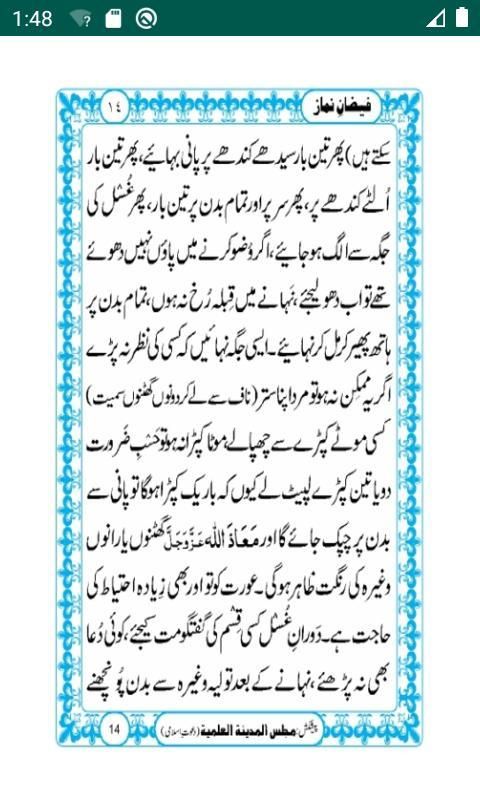 1:48
فیضانِ نماز ١٤
سکتے ہیں) پھر تین بار سیدھے کندھے پر پانی بہائیے، پھر تین بار
اُلٹے کندھے پر، پھر سر پر اور تمام بدن پر تین بار، پھر غُسْل کی
جگہ سے الگ ہو جائیے، اگر وُضو کرنے میں پاؤں نہیں دھوئے
تھے تو اب دھو لیجئے، نَہانے میں قِبلہ رُخ نہ ہوں، تمام بدن پر
ہاتھ پھیر کر مل کر نہائیے۔ ایسی جگہ نہائیں کہ کسی کی نظر نہ پڑے
اگر یہ ممکِن نہ ہو تو مرد اپنا ستر (ناف سے لے کر دونوں گھٹنوں سمیت)
کسی موٹے کپڑے سے چھپالے موٹا کپڑا نہ ہو تو حَسْبِ ضَرورت
دو یا تین کپڑے لپیٹ لے کیوں کہ باریک کپڑا ہوگا تو پانی سے
بدن پر چپک جائے گا اور مَعَاذَ اللہ عَزَّوَجَلَّ گھٹنوں یا رانوں
وغیرہ کی رنگت ظاہر ہوگی۔ عورت کو تو اور بھی زِیادہ احتیاط کی
حاجت ہے۔ دَورانِ غُسْل کسی قِسْم کی گفتگو مت کیجئے، کوئی دُعا
بھی نہ پڑھئے، نہانے کے بعد تولیہ وغیرہ سے بدن پُونچھنے
14 پیشکش: مجلس المدینة العلمیة (دعوتِ اسلامی)